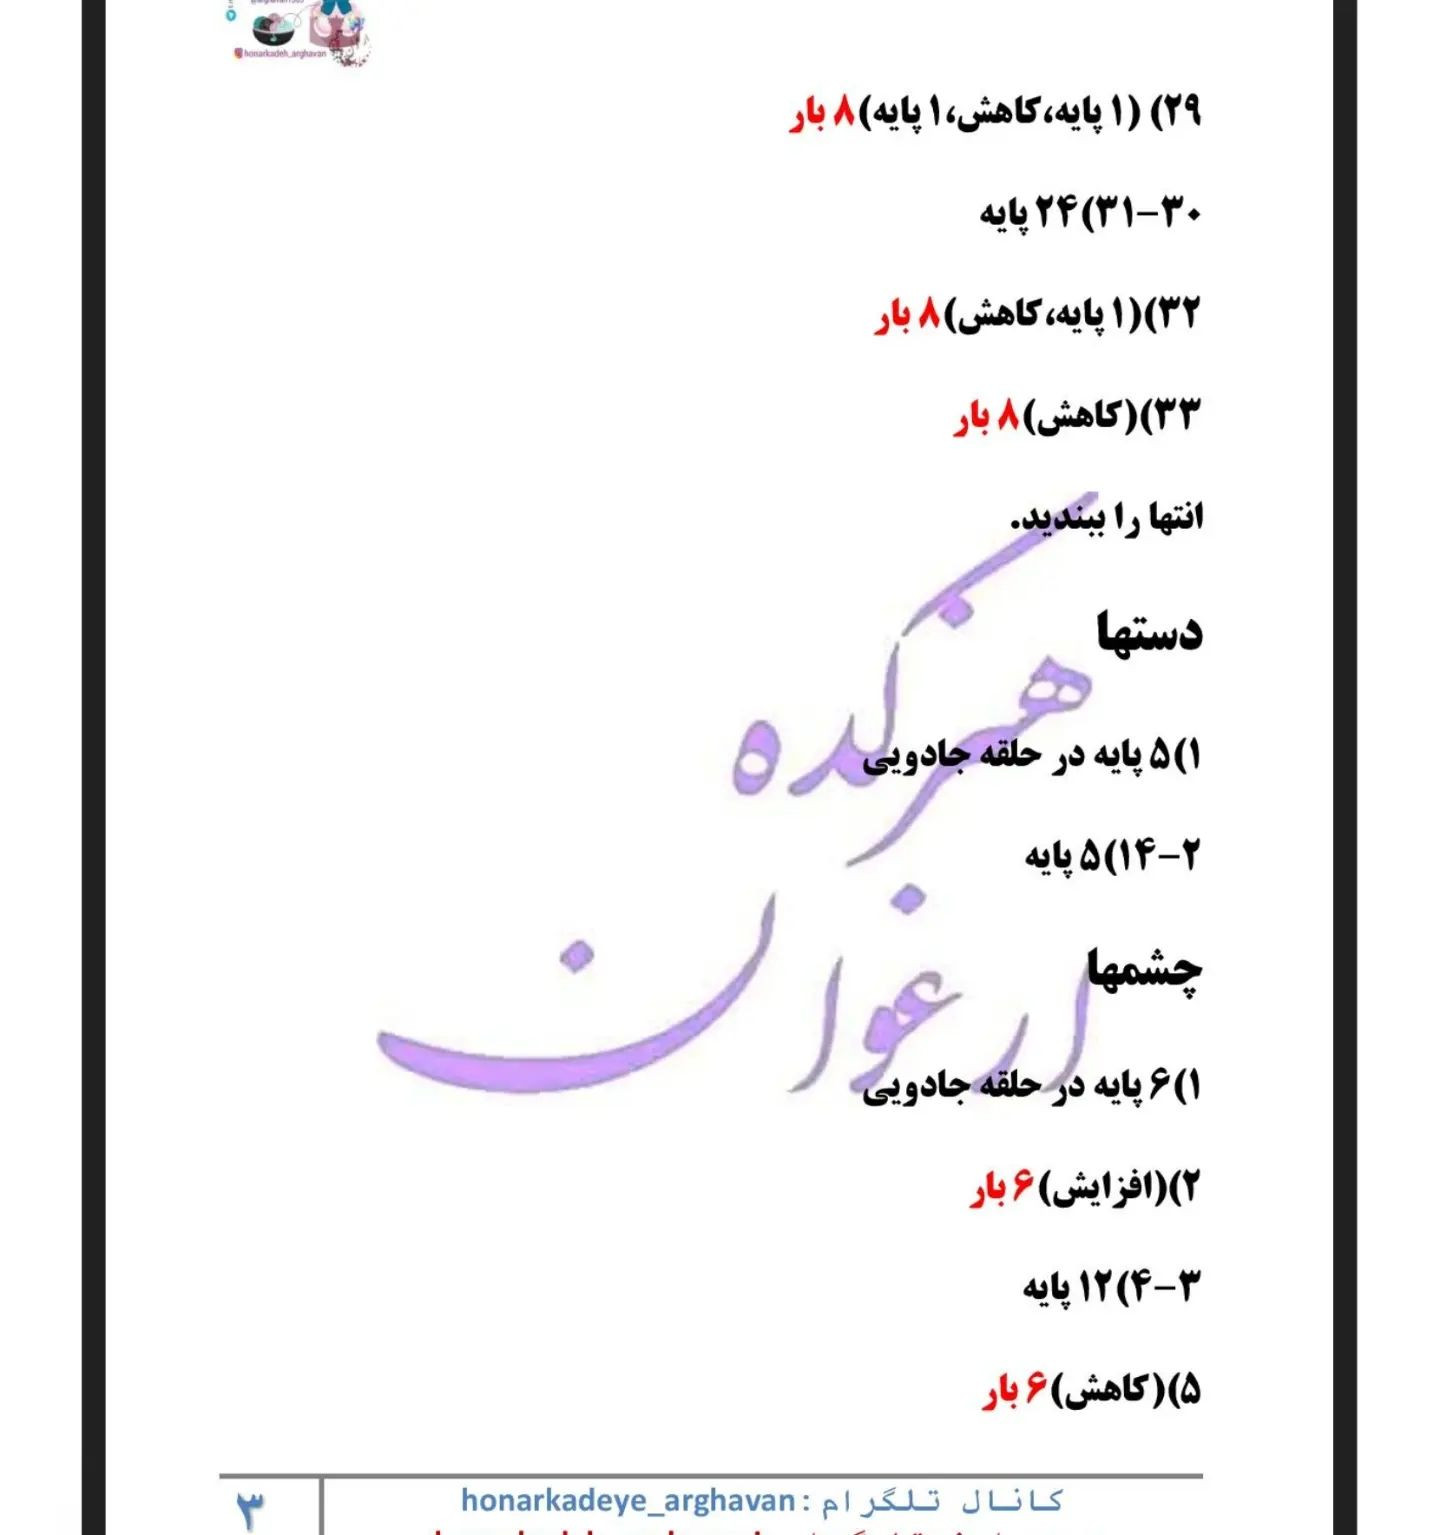 honarkadeh_arghavan
۲۹) (۱ پایه،کاهش،۱ پایه)۸ بار
۳۰-۳۱)۲۴ پایه
۳۲)(۱ پایه،کاهش)۸ بار
۳۳)(کاهش)۸ بار
انتها را ببندید.
دستها
هنرکده
۱)۵ پایه در حلقه جادویی
۲-۱۴)۵ پایه
چشمها
ارغوان
۱)۶ پایه در حلقه جادویی
۲)(افزایش)۶ بار
۳-۴)۱۲ پایه
۵)(کاهش)۶ بار
کانال تلگرام : honarkadeye_arghavan
۳